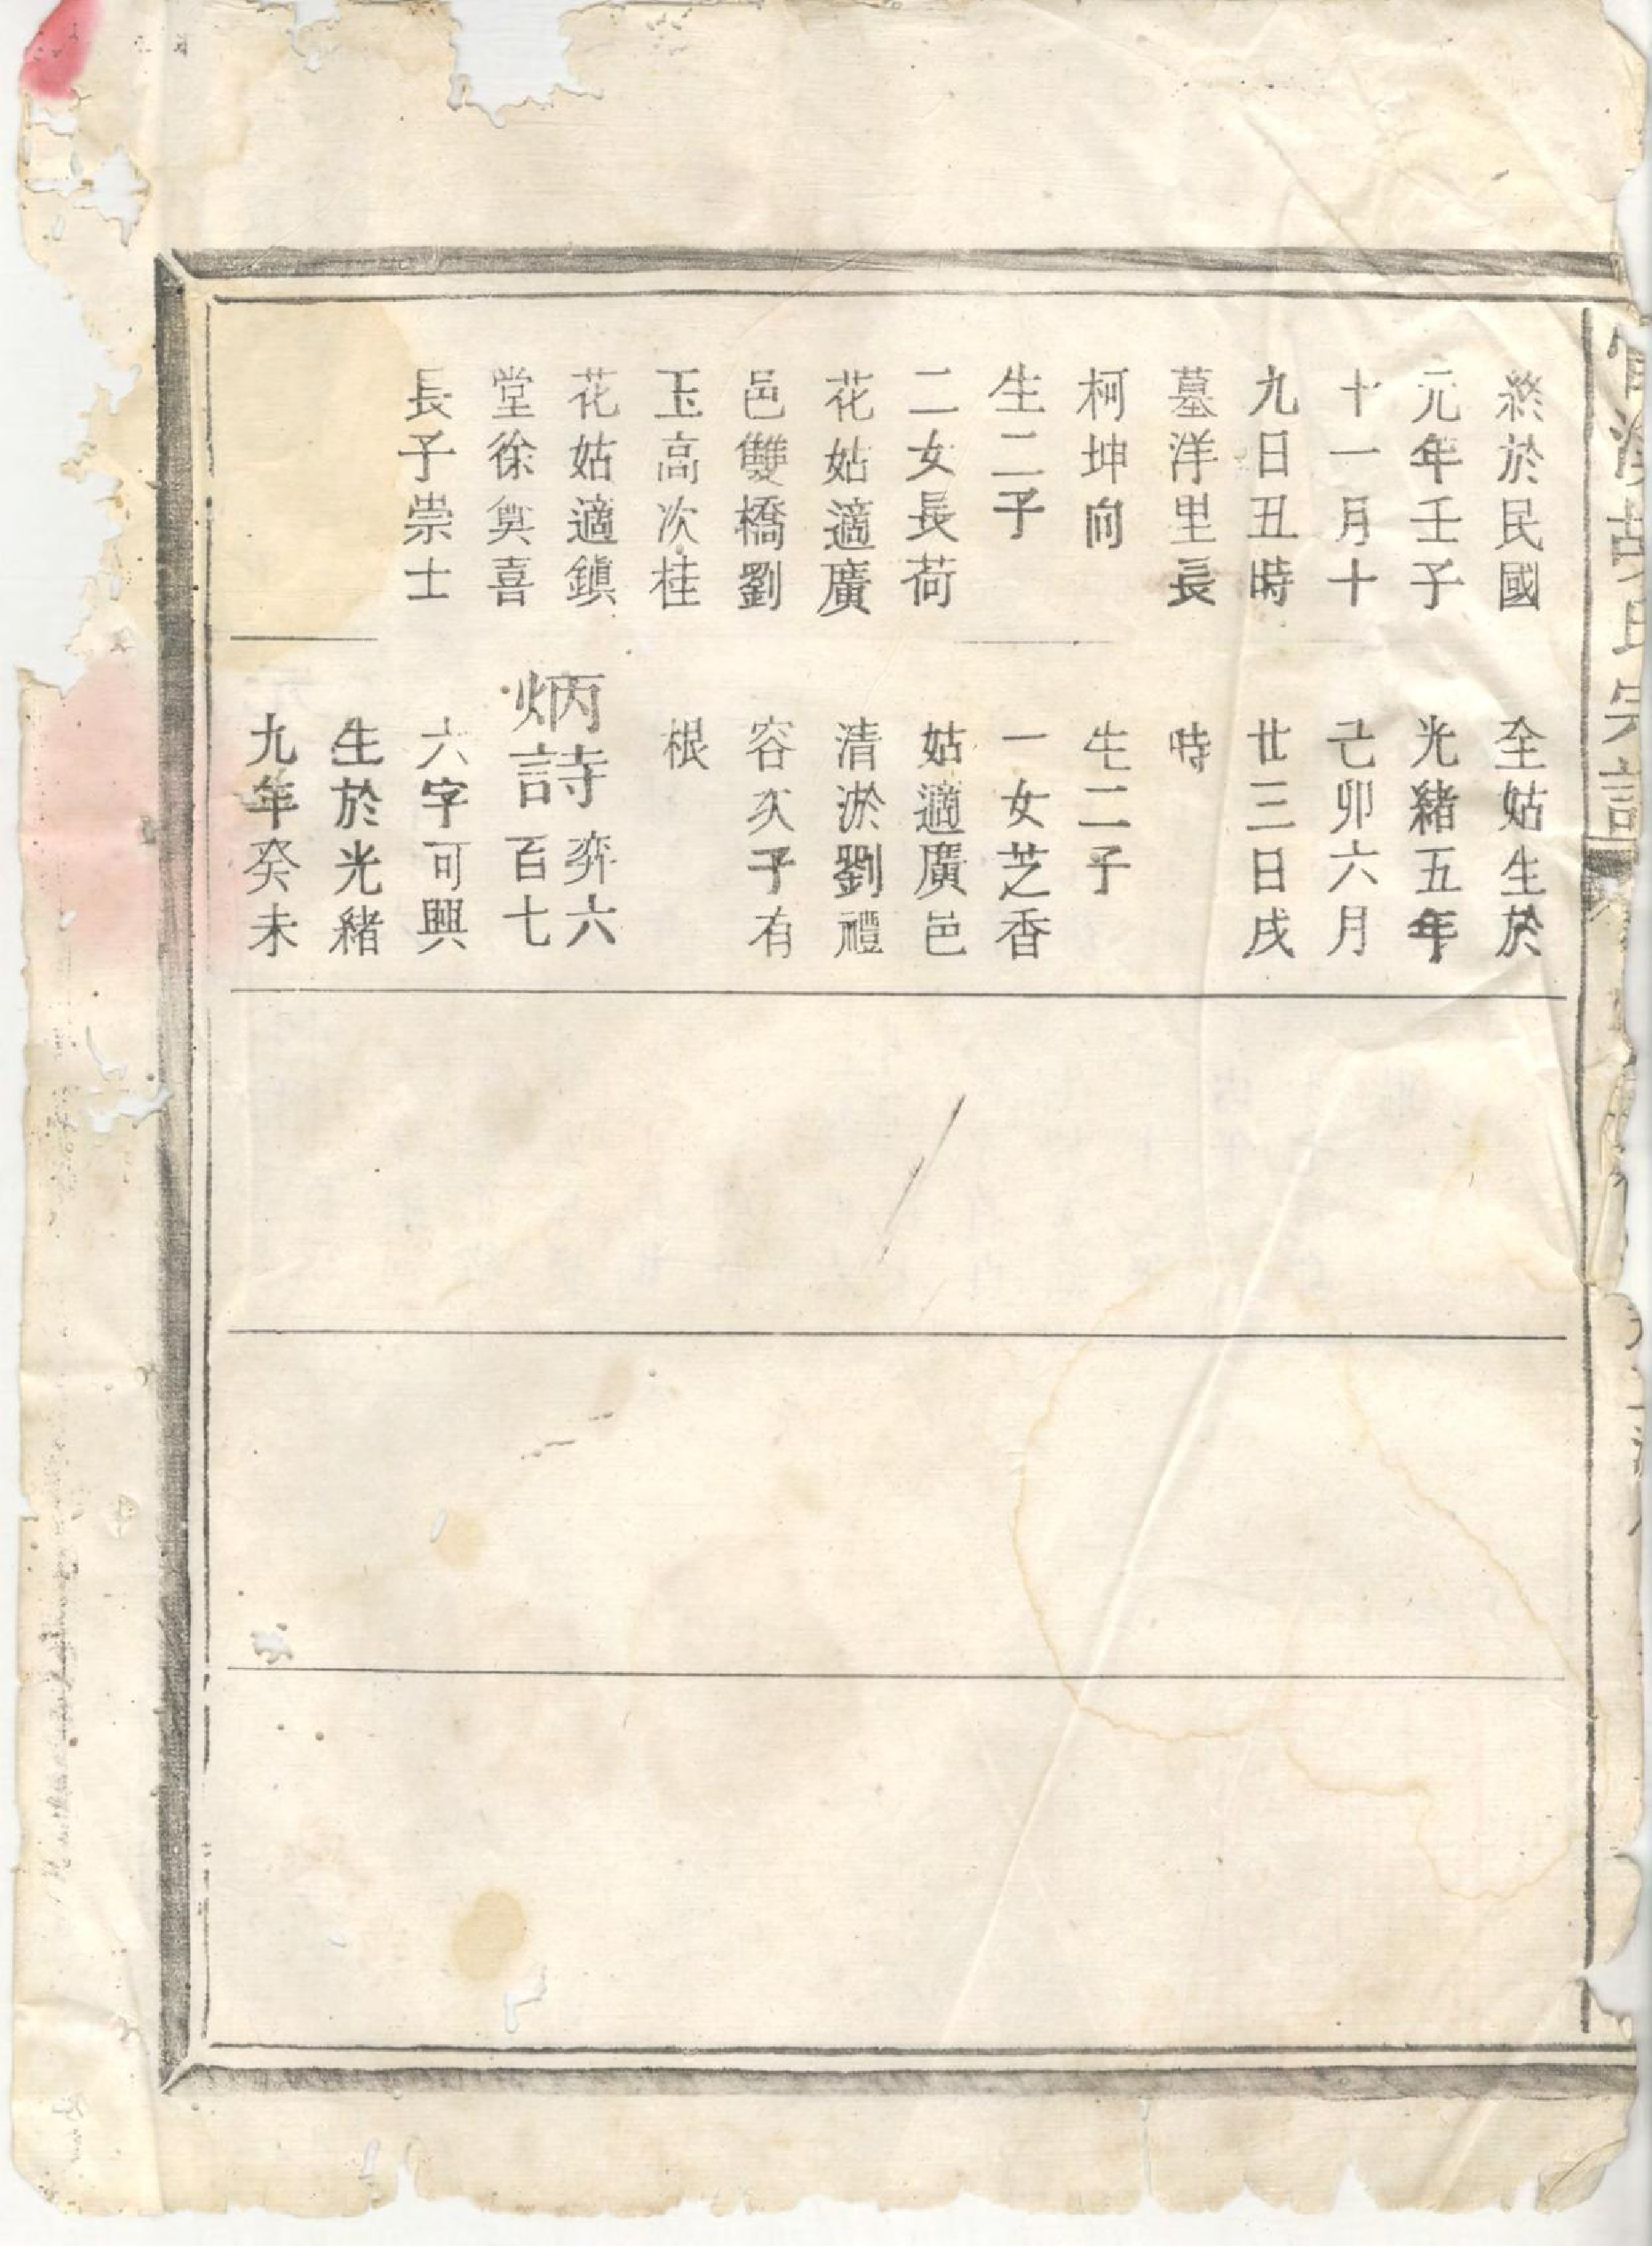 胡氏宗譜
終於民國
元年壬子
十一月十
九日丑時
墓洋里長
柯坤向
生二子
二女長荷
花姑適廣
邑雙橋劉
玉高次桂
花姑適鎮
堂徐興喜
長子崇士
全姑生於
光緒五年
己卯六月
廿三日戌
時
生二子
一女芝香
姑適廣邑
清淤劉禮
容次子有
根
炳詩 弈六
百七
六字可興
生於光緒
九年癸未